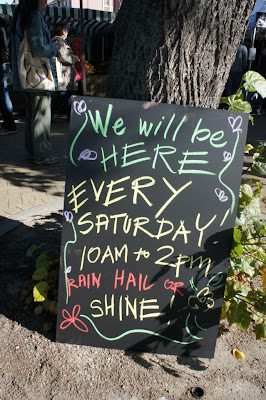 We will be
HERE
EVERY
SATURDAY!
10AM to 2pm
RAIN HAIL OR
SHINE!